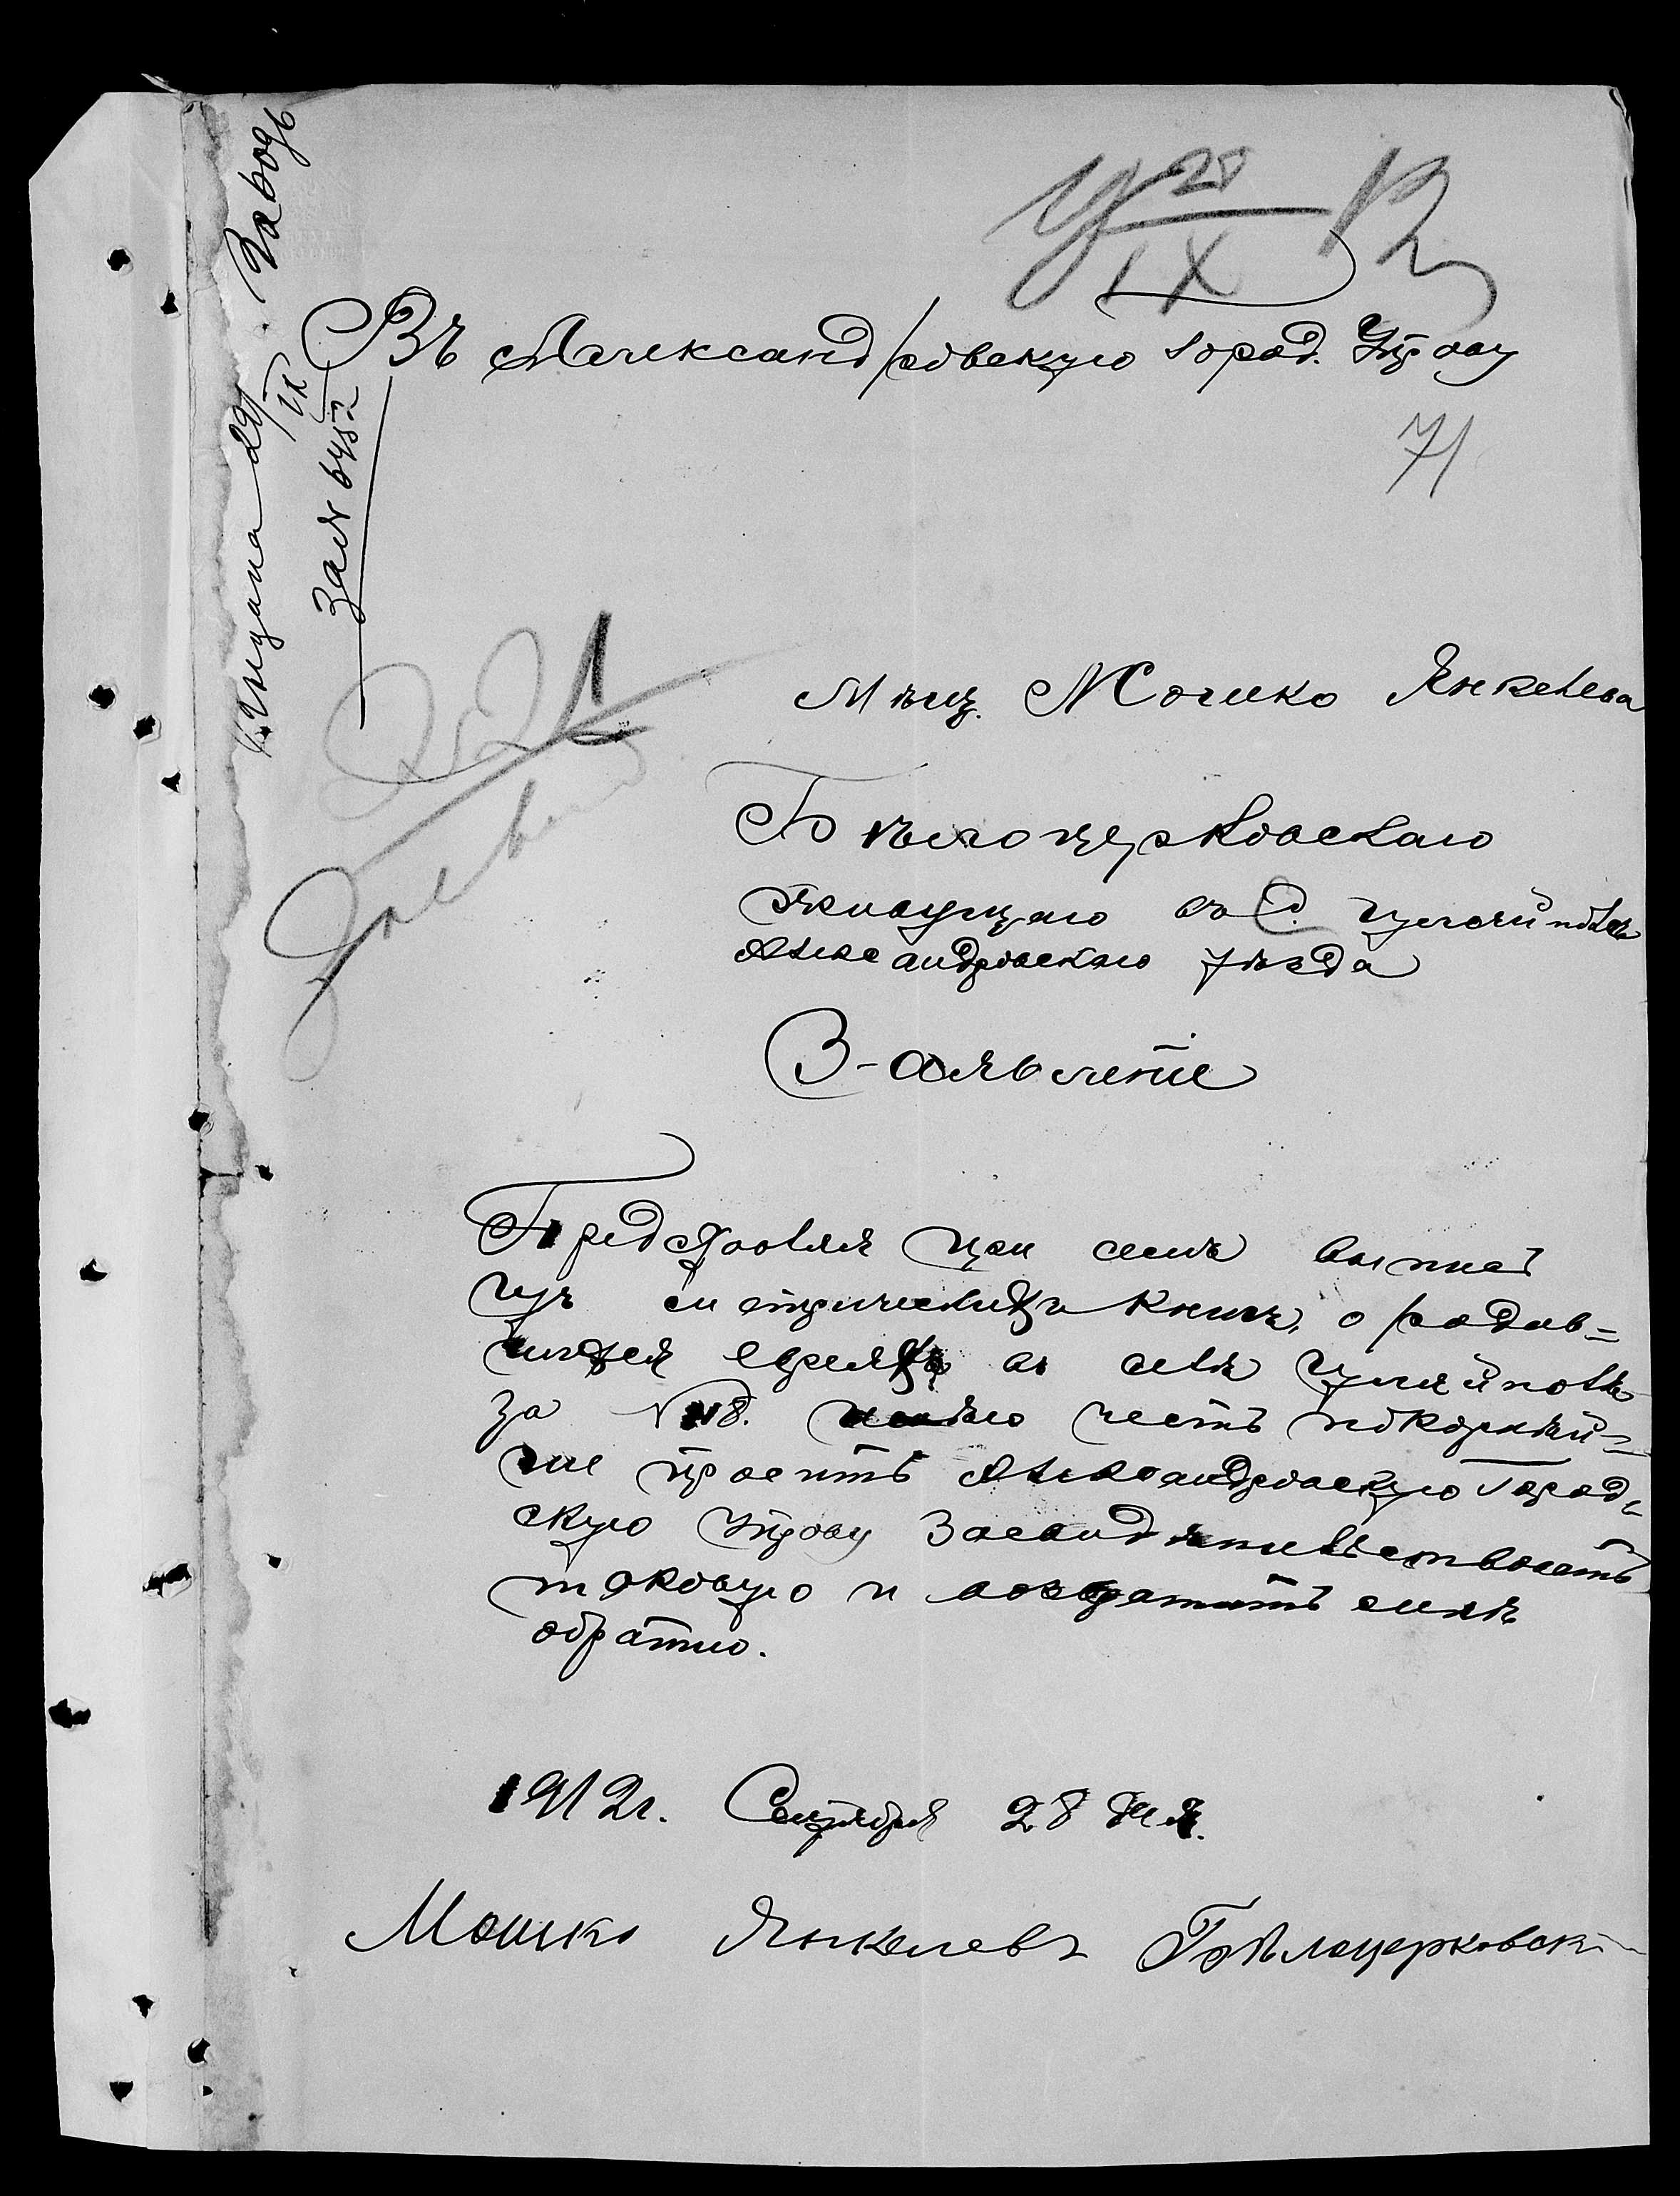 У 28/IX 12
Въ Александровскую город. Управу
71
Мѣщ. Мошко Янкелева
Бѣлоцерковскаго
живущаго въ с. Гуляйполѣ
Александровскаго уѣзда
З-аявленіе
Представляя при семъ выпись
изъ метрическихъ книгъ, о родив=
шихся евреяхъ въ селѣ Гуляйполѣ
за № 8. имѣю честь покорнѣй=
ше просить Александровскую Город=
скую Управу Засвидѣтельствовать
таковую и возвратить мнѣ
обратно.
1912г. Сентября 28 дня.
Мошко Янкелевъ Бѣлоцерковскі
29/IX
За № 6452